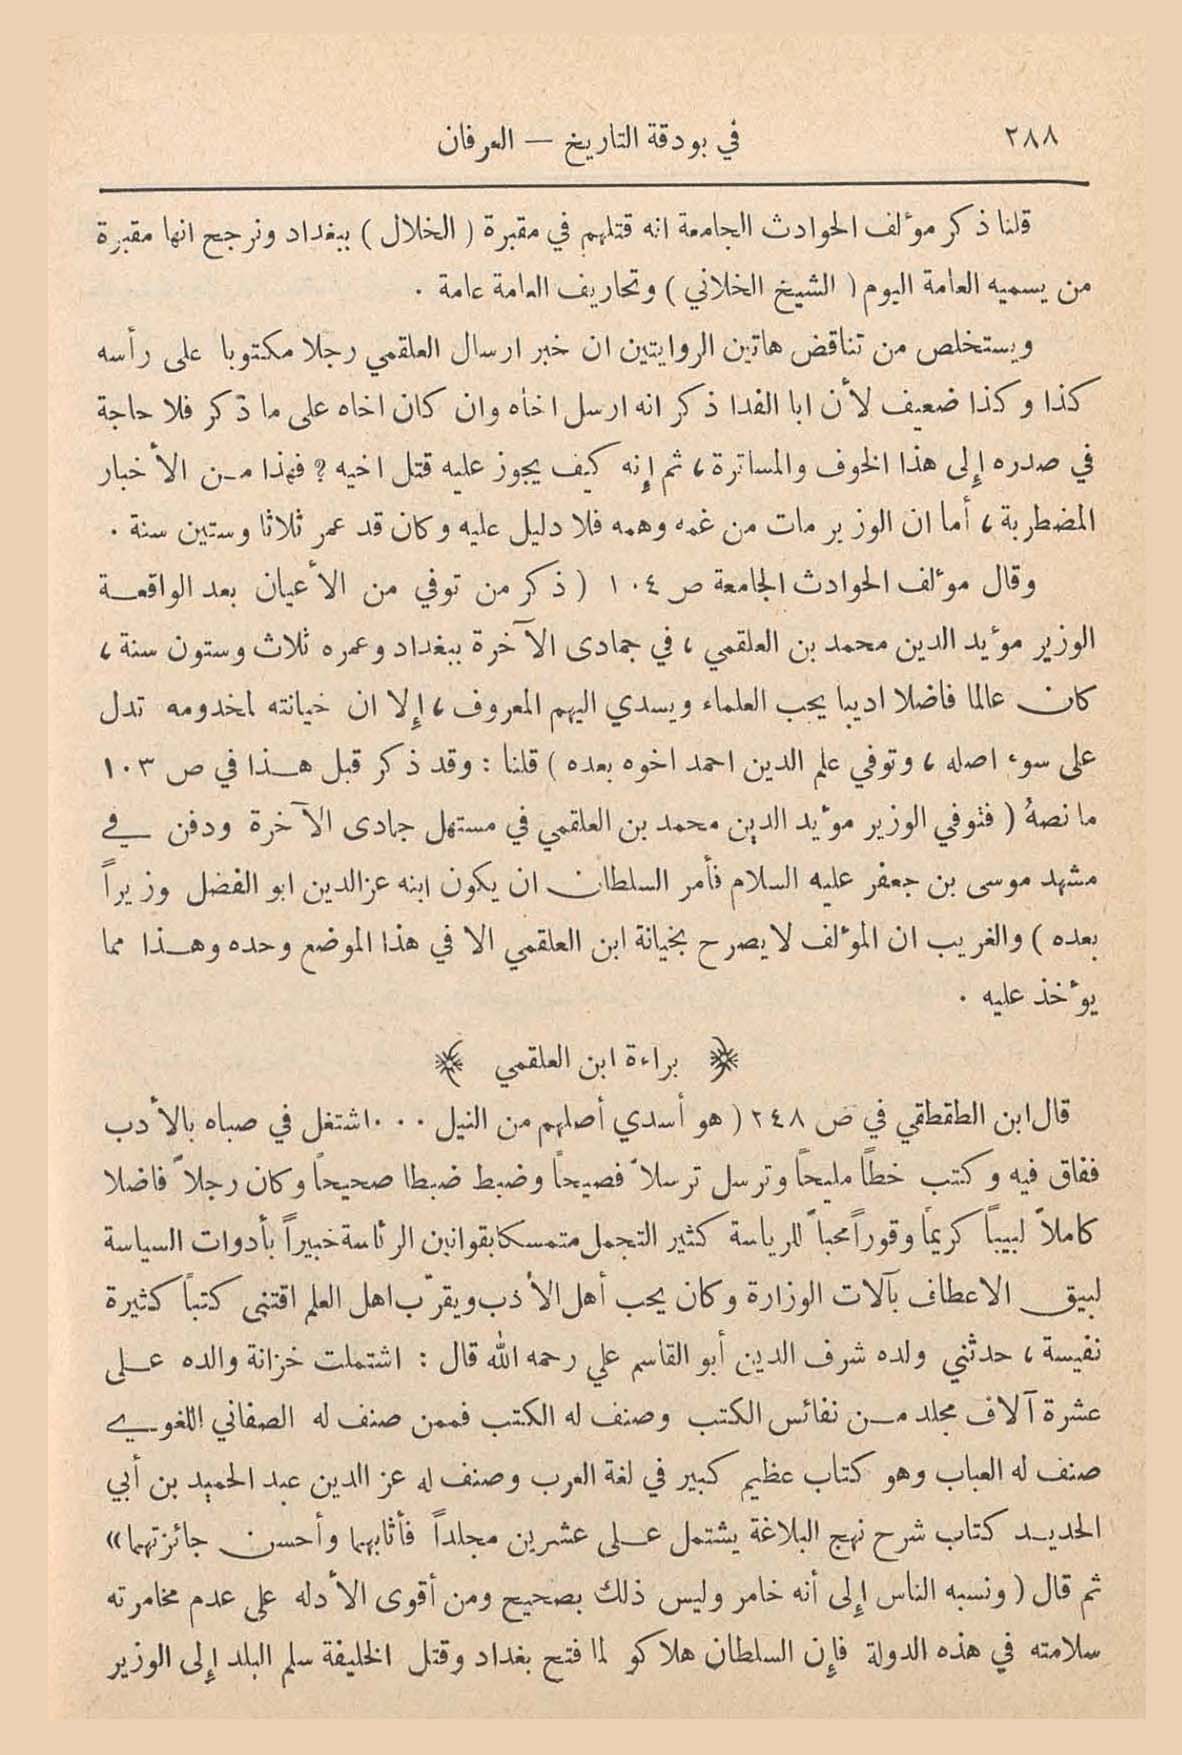 ٢٨٨
في بودقة التاريخ — العرفان
قلنا ذكر مؤلف الحوادث الجامعة انه قتلهم في مقبرة ( الخلال ) ببغداد ونرجح انها مقبرة
من يسميه العامة اليوم ( الشيخ الخلاني ) وتحاريف العامة عامة .
ويستخلص من تناقض هاتين الروايتين ان خبر ارسال العلقمي رجلا مكتوبا على رأسه
كذا وكذا ضعيف لأن ابا الفدا ذكر انه ارسل اخاه وان كان اخاه على ما ذكر فلا حاجة
في صدره إلى هذا الخوف والمساترة ، ثم إنه كيف يجوز عليه قتل اخيه ? فهذا من الأخبار
المضطربة ، أما ان الوزير مات من غمه وهمه فلا دليل عليه وكان قد عمر ثلاثا وستين سنة .
وقال مؤلف الحوادث الجامعة ص ١٠٤ ( ذكر من توفي من الأعيان بعد الواقعة
الوزير مؤيد الدين محمد بن العلقمي ، في جمادى الآخرة ببغداد وعمره ثلاث وستون سنة ،
كان عالما فاضلا اديبا يحب العلماء ويسدي اليهم المعروف ، إلا ان خيانته لمخدومه تدل
على سوء اصله ، وتوفي علم الدين احمد اخوه بعده ) قلنا : وقد ذكر قبل هـذا في ص ١٠٣
ما نصهُ ( فتوفي الوزير مؤيد الدين محمد بن العلقمي في مستهل جمادى الآخرة ودفن في
مشهد موسى بن جعفر عليه السلام فأمر السلطان ان يكون ابنه عزالدين ابو الفضل وزيراً
بعده ) والغريب ان المؤلف لا يصرح بخيانة ابن العلقمي الا في هذا الموضع وحده وهـذا مما
يؤخذ عليه .
﴿ براءة ابن العلقمي ﴾
قال ابن الطقطقي في ص ٢٤٨ ( هو أسدي أصلهم من النيل ... اشتغل في صباه بالأدب
ففاق فيه وكتب خطاً مليحاً وترسل ترسلاً فصيحاً وضبط ضبطا صحيحاً وكان رجلاً فاضلا
كاملاً لبيباً كريماً وقوراً محباً للرياسة كثير التجمل متمسكا بقوانين الرئاسة خبيراً بأدوات السياسة
لبيق الاعطاف بآلات الوزارة وكان يحب أهل الأدب ويقرّب اهل العلم اقتنى كتباً كثيرة
نفيسة ، حدثني ولده شرف الدين أبو القاسم علي رحمه الله قال : اشتملت خزانة والده عـلى
عشرة آلاف مجلد من نفائس الكتب وصنف له الكتب فممن صنف له الصغاني اللغوي
صنف له العباب وهو كتاب عظيم كبير في لغة العرب وصنف له عز الدين عبد الحميد بن أبي
الحديد كتاب شرح نهج البلاغة يشتمل عـلى عشرين مجلداً فأثابهما وأحسن جائزتهما»
ثم قال ( ونسبه الناس إلى أنه خامر وليس ذلك بصحيح ومن أقوى الأدله على عدم مخامرته
سلامته في هذه الدولة فإن السلطان هلاكو لما فتح بغداد وقتل الخليفة سلم البلد إلى الوزير